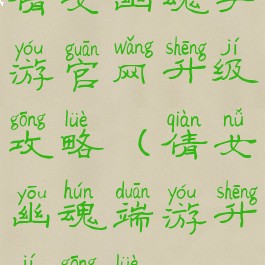 yóu guān wǎng shēng jí
游官网升级
gōng lüè qiàn nǚ
攻略（倩女
yōu hún duān yóu shēng
幽魂端游升
jí gōng lüè